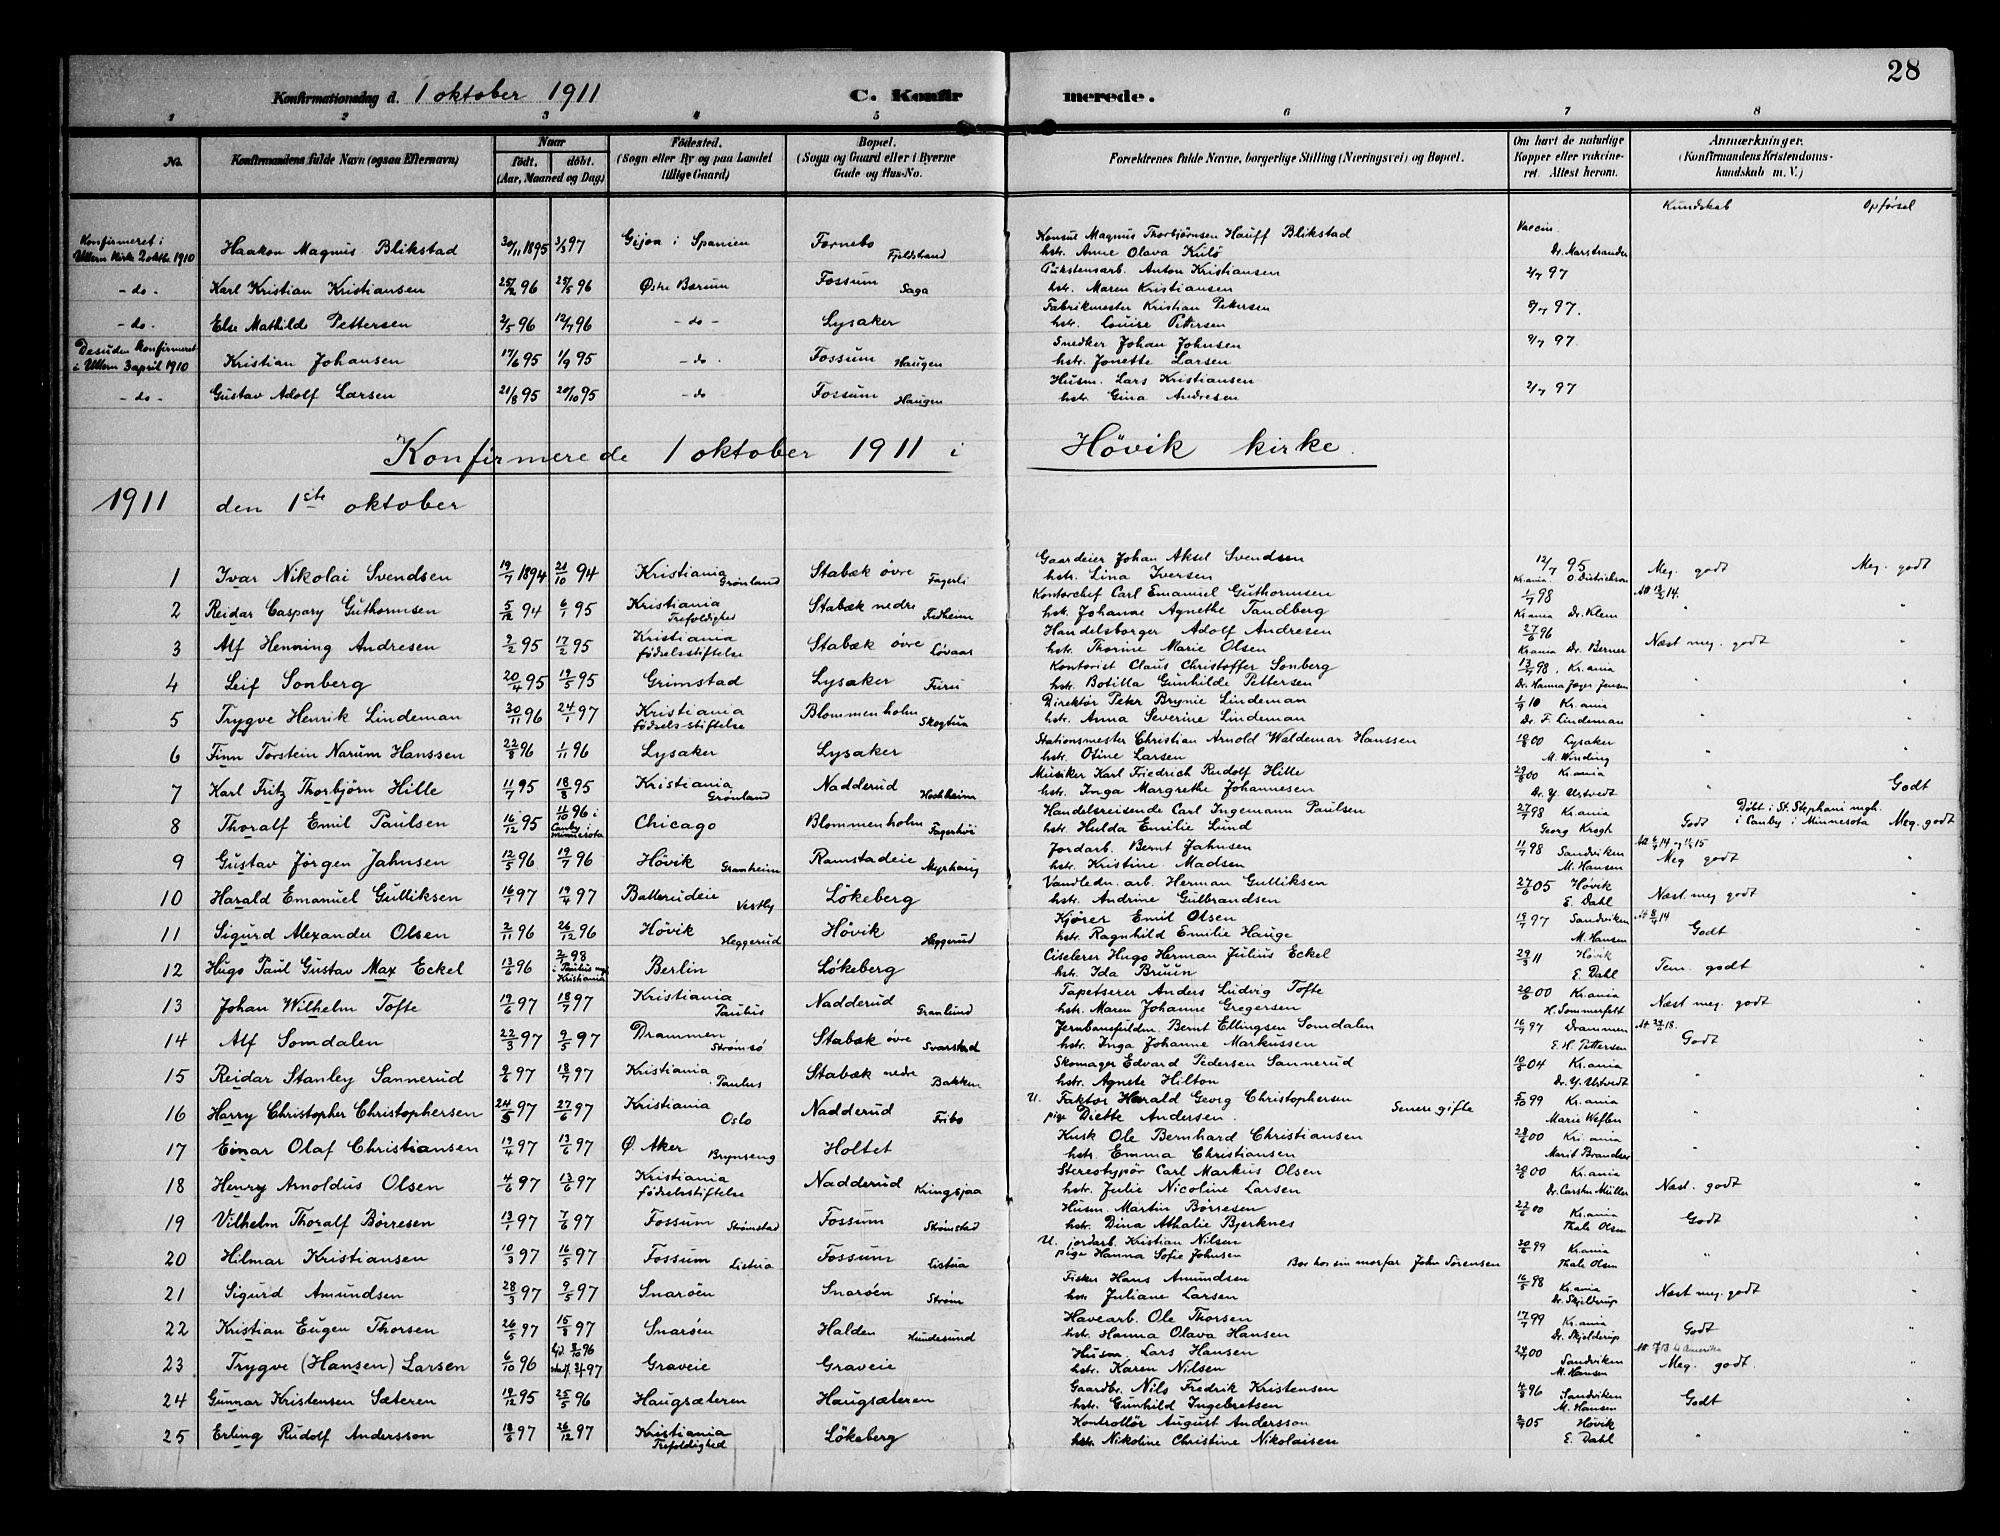 28
Konfirmationsdag d. 1 oktober 1911 C. Konfirmerede.
1 2 3 4 5 6 7 8
No. Konfirmandens fulde Navn (ogsaa Efternavn) Naar født. døbt. (Aar, Maaned og Dag) Fødested. (Sogn eller By og paa Landet tillige Gaard) Bopæl. (Sogn og Gaard eller i Byerne Gade og Hus-No. Forældrenes fulde Navne, borgerlige Stilling (Næringsvei) og Bopæl. Om havt de naturlige Kopper eller vakcineret. Attest herom. Anmærkninger. (Konfirmandens Kristendomskundskab m. V.)
Kundskab Opførsel
Konfirmeret i Ullern Kirke 2 oktbr 1910 Haakon Magnus Blikstad 30/11 1895 3/3 97 Gijoa i Spanien Fornebo Fjeldstrand Konsul Magnus Thorbjørnsen Hauff Blikstad Vaccin.
hstr. Anne Olava Kulø Dr. Marstrander
- do - Karl Kristian Kristiansen 25/2 96 25/5 96 Østre Bærum Fossum Saga Pukstensarb. Anton Kristiansen 2/7 97
hstr. Maren Kristiansen
- do - Else Mathilde Pettersen 2/5 96 12/7 96 - do - Lysaker Fabrikmester Kristian Pettersen 9/7 97.
hstr. Louise Pettersen
Desuden konfirmeret i Ullern 3 april 1910 Kristian Johansen 17/6 95 1/9 95 - do - Fossum Haugen Snedker Johan Johnsen 9/7 97
hstr. Jonette Larsen
- do - Gustav Adolf Larsen 21/8 95 20/10 95 - do Fossum Haugen Husm. Lars Kristiansen 2/7 97
hstr. Gina Andresen
Konfirmerede 1 oktober 1911 i Høvik kirke.
1911 den 1ste oktober
1 Ivar Nikolai Svendsen 19/7 1894 21/10 94 Kristiania Grønland Stabæk øvre Fagerli Gaardeier Johan Aksel Svendsen 12/7 95 Meg. godt Meg. godt
hstr. Lina Iversen Kr.ania O. Dietrichson
2 Reidar Caspary Guthormsen 5/12 94 6/1 95 Kristiania Trefoldighed Stabæk nedre Fredheim Kontorchef Carl Emanuel Guthormsen 1/7 98 " "
hstr. Johanne Agnethe Tandberg Kr.ania Dr. Klem
3 Alf Henning Andresen 2/2 95 17/2 95 Kristiania fødselsstiftelse Stabæk øvre Løvaas Handelsborger Adolf Andresen 27/6 96 Næst meg. godt "
hstr. Thorine Marie Olsen Kr.ania Dr. Berner
4 Leif Sonberg 20/4 95 19/5 95 Grimstad Lysaker Furu Kontorist Claus Christoffer Sonberg 13/7 98. Kr.ania " "
hstr. Botilla Gunhilde Pettersen Dr. Hanna Jæger Jensen
5 Trygve Henrik Lindeman 30/11 96 24/1 97 Kristiania Fødselsstiftelse Blommenholm Skogtua Direktør Peter Brynie Lindeman 1/9 10 Kr.ania " "
hstr. Anna Severine Lindeman Dr. F. Lindeman
6 Finn Torstein Narum Hanssen 22/8 96 1/11 96 Lysaker Lysaker Stationsmester Christian Arnold Waldemar Hanssen 18/8 00 Lysaker " "
hstr. Otine Larsen M. Winding
7 Karl Fritz Thorbjørn Hille 11/7 95 18/8 95 Kristiania Grønland Nadderud Hochheim Musiker Karl Friedrich Rudolf Hille 29/8 00 Kr.ania " Godt
hstr. Inga Margrethe Johannesen Dr. Y. Ustvedt
8 Thoralf Emil Paulsen 16/12 95 11/10 96 i Canby i Minnesota Chicago Blommenholm Fagerhøi Handelsreisende Carl Ingemann Paulsen 27/7 98 Kr.ania Godt Døbt i St. Stephani mgh. i Canby i Minnesota Meg. godt
hstr. Hulda Emilie Lund Georg Krogh
9 Gustav Jørgen Jahnsen 12/5 96 19/7 96 Høvik Granheim Ramstadeie Myrhaug Jordarb. Bernt Jahnsen 11/7 98 Sandviken Meg godt "
hstr. Kristine Madsen M. Hansen
10 Harald Emanuel Gulliksen 16/1 97 19/4 97 Ballerudeie Vestby Løkeberg Vandledn. arb. Herman Gulliksen 27/6 05 Høvik Næst meg godt "
hstr. Andrine Gulbrandsen E. Dahl
11 Sigurd Alexander Olsen 2/11 96 26/12 96 Høvik Heggerud Høvik Heggerud Kjører Emil Olsen 19/7 97 Sandviken Att 8/4 14 Godt "
hstr. Ragnhild Emilie Hauge M. Hansen
12 Hugo Paul Gustav Max Eckel 13/6 96 2/1 98 i Paulus mgh. Kristiania Berlin Løkeberg Ciselerer Hugo Herman Julius Eckel 29/3 11 Høvik Tem. godt "
hstr. Ida Bruun E. Dahl
13 Johan Wilhelm Tofte 19/6 97 18/7 97 Kristiania Paulus Nadderud Granlund Tapetserer Anders Ludvig Tofte 20/6 00 Kr.ania Næst meg. godt "
hstr. Maren Johanne Gregersen H. Sommerfelt
14 Alf Somdalen 22/3 97 9/5 97 Drammen Strømsø Stabæk øvre Svarstad Jernbanefuldm. Bernt Ellingsen Somdalen 16/7 97 Drammen Godt "
hstr. Inga Johanne Markussen E. H. Pettersen
15 Reidar Stanley Sannerud 9/6 97 18/7 97 Kristiania Paulus Stabæk nedre Bakken Skomager Edvard Pedersen Sannerud 10/8 04 Kr.ania " "
hstr. Agnete Hilton Dr. Y. Ustvedt
16 Harry Christopher Christophersen 24/5 97 27/6 97 Kristiania Oslo Nadderud Fribo U. Faktor Harald Georg Christophersen Senere gifte 5/10 99 Kr.ania " "
pige Diette Andersen. Marie Wefben
17 Einar Olaf Christiansen 19/4 97 13/6 97 Ø. Aker Brynseng Holtet Kusk Ole Bernhard Christiansen 28/6 00 Kr.ania " "
hstr. Emma Christiansen Marit Brandser
18 Henry Arnoldus Olsen 4/6 97 13/6 97 Kristiania fødselsstiftelse Nadderud Kringsjaa Stereotypør Carl Markus Olsen 20/6 00 Kr.ania Næst. godt "
hstr. Julie Nicoline Larsen Dr. Carsten Müller
19 Vilhelm Thoralf Børresen 13/1 97 7/6 97 Fossum Strømstad Fossum Strømstad Husm. Martin Børresen 22/6 00 Kr.ania Godt "
hstr. Dina Athalie Bjerknes Thale Olsen
20 Hilmar Kristiansen 10/3 97 16/5 97 Fossum Listua Fossum Listua U. jordarb. Kristian Nilsen 30/6 99 Kr.ania " "
pige Hanna Sofie Johnsen Bor hos sin morfar John Sørensen Thale Olsen
21 Sigurd Amundsen 28/3 97 9/5 97 Snarøen Snarøen Strøm Fisker Hans Amundsen 16/5 98 Kr.ania Næst meg. godt "
hstr. Juliane Larsen Dr. Skjelderup
22 Kristian Eugen Thorsen 26/5 97 15/8 97 Snarøen Halden Hundesund Havearb. Ole Thorsen 17/7 99 Kr.ania Godt "
hstr. Hanna Olava Hansen Dr. Skjelderup
23 Trygve (Hansen) Larsen 6/10 96 Graveie Graveie Husm. Lars Hansen 24/7 00 Sandviken Meg. godt. "
hstr. Karen Nilsen M. Hansen
24 Gunnar Kristensen Sæteren 19/12 95 25/5 96 Haugsæteren Haugsæteren Gaardbr. Nils Fredrik Kristensen 4/8 96 Sandviken Godt "
hstr. Gunhild Ingebretsen M. Hansen
25 Erling Rudolf Andersson 18/6 97 26/12 97 Kristiania Trefoldighed Løkeberg Kontrollør August Andersson 05 Høvik " "
hstr. Nikoline Christine Nikolaisen E. Dahl